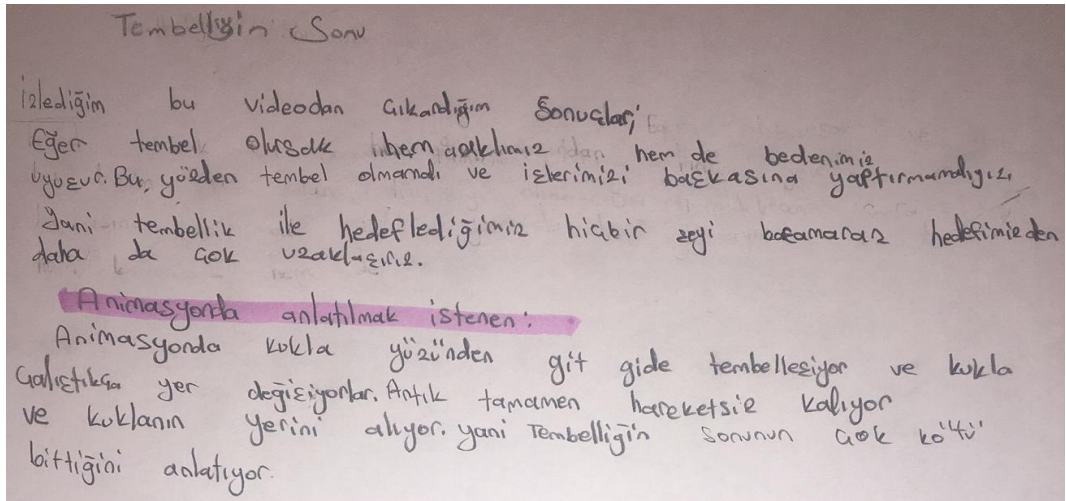 Tembelliğin Sonu
İzlediğim bu videodan çıkardığım sonuçlar;
Eğer tembel olursak hem aklımız hem de bedenimiz
uyuşur. Bu yüzden tembel olmamalı ve işlerimizi başkasına yaptırmamalıyız.
Yani tembellik ile hedeflediğimiz hiçbir şeyi başaramaz hedefimizden
daha da çok uzaklaşırız.
Animasyonda anlatılmak istenen:
Animasyonda kukla yüzünden git gide tembelleşiyor ve kukla
çalıştıkça yer değişiyorlar. Artık tamamen hareketsiz kalıyor
ve kuklanın yerini alıyor. yani Tembelliğin sonunun çok kötü
bittiğini anlatıyor.